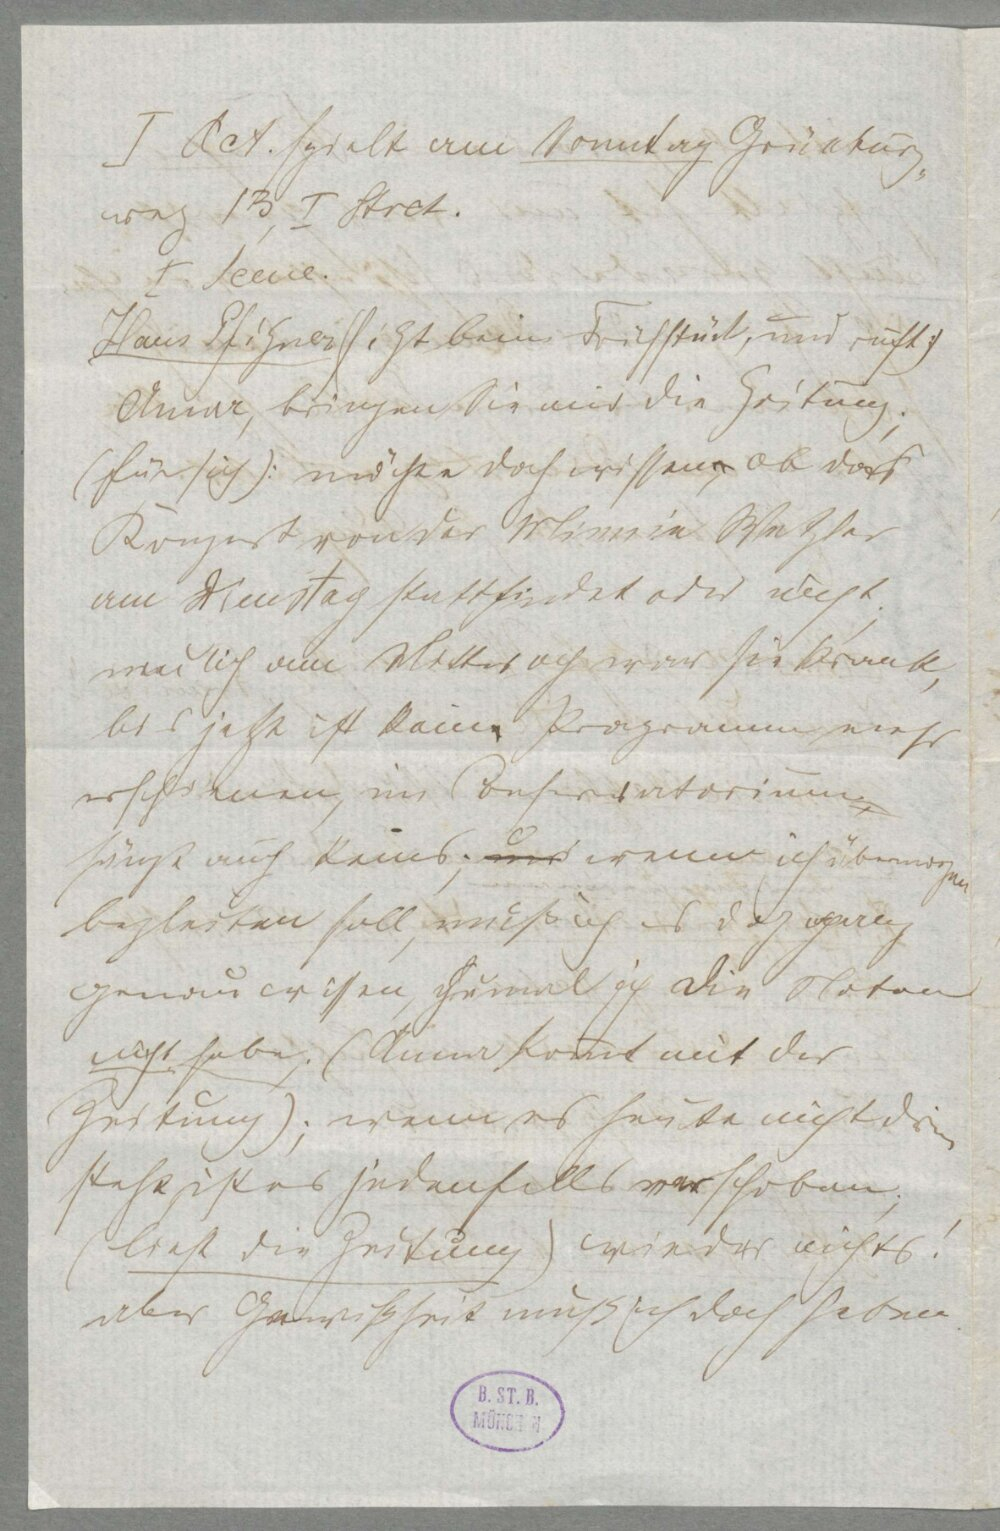 I Act. spielt am Sonntag Grüneburg-
weg 13, I Stock.
I. Scene.
Hans Pfitzner (sitzt beim Frühstück, und ruft:)
Anna, bringen Sie mir die Zeitung;
(für sich): möchte doch wissen, ob das
Konzert von der Minnie
am Dienstag stattfindet oder nicht,
neulich am Mittwoch war sie krank,
bis jetzt ist kein Programm mehr
erschienen, im Conservatorium
hängt auch keins; und wenn ich übermorgen
begleiten soll, muß ich es doch ganz
genau wissen, zumal ich die Noten
nicht habe. (Anna kommt mit der
Zeitung); wenn es heute nicht drin
steht, ist es jedenfalls verschoben;
(liest die Zeitung) wieder nichts!
aber Gewißheit muß ich doch haben.
B. ST. B.
MÜNCHEN